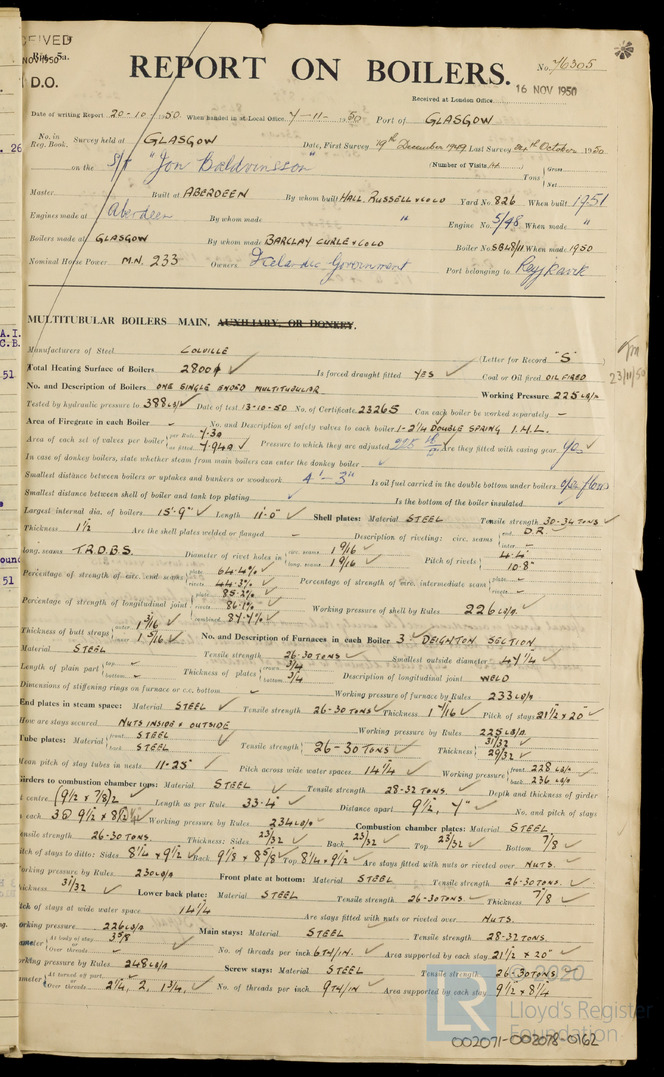 Rpt. 5a.
NOV 1950
D.O.
REPORT ON BOILERS.
No. 76305
16 NOV 1950
Received at London Office
Date of writing Report 20-10-1950 When handed in at Local Office 7-11-1950 Port of GLASGOW
No. in Reg. Book. Survey held at GLASGOW Date, First Survey 19th December 1949 Last Survey October 1950
26 on the S/T "Jon Baldvinsson" (Number of Visits) Tons { Gross Net
Master Built at ABERDEEN By whom built HALL RUSSELL & CO LD Yard No. 826 When built 1951
Engines made at Aberdeen By whom made " Engine No. 5/48 When made "
Boilers made at GLASGOW By whom made BARCLAY CURLE & CO LD Boiler No. SBL48/11 When made 1950
Nominal Horse Power M.N. 233 Owners Icelandic Government Port belonging to Reykjavik
MULTITUBULAR BOILERS MAIN, AUXILIARY, OR DONKEY.
Manufacturers of Steel COLVILLE (Letter for Record "S")
Total Heating Surface of Boilers 2800 Is forced draught fitted YES Coal or Oil fired OIL FIRED
23/11/50
No. and Description of Boilers ONE SINGLE ENDED MULTITUBULAR Working Pressure 225 LB/
Tested by hydraulic pressure to 388 LB/ Date of test 13-10-50 No. of Certificate 23265 Can each boiler be worked separately –
Area of Firegrate in each Boiler – No. and Description of safety valves to each boiler 1-2¼ DOUBLE SPRING I.H.L.
Area of each set of valves per boiler { per Rule 7.30 as fitted 7.94 Pressure to which they are adjusted 225 Are they fitted with easing gear Yes
In case of donkey boilers, state whether steam from main boilers can enter the donkey boiler
Smallest distance between boilers or uptakes and bunkers or woodwork 4'-3" Is oil fuel carried in the double bottom under boilers open floors
Smallest distance between shell of boiler and tank top plating Is the bottom of the boiler insulated
Largest internal dia. of boilers 15'-9" Length 11'-0" Shell plates: Material STEEL Tensile strength 30-34 TONS
Thickness 1½ Are the shell plates welded or flanged – Description of riveting: circ. seams { end D.R. inter. –
long. seams T.R.D.B.S. Diameter of rivet holes in { circ. seams 1 9/16 long. seams 1 9/16 Pitch of rivets { 4.4" 10.8"
Percentage of strength of circ. end seams { plate 64.4% rivets 44.3% Percentage of strength of circ. intermediate seams { plate – rivets –
Percentage of strength of longitudinal joint { plate 85.2% rivets 86.1% combined 87.7% Working pressure of shell by Rules 226 LB/
Thickness of butt straps { outer 1 3/16 inner 1 5/16 No. and Description of Furnaces in each Boiler 3 DEIGHTON SECTION
Material STEEL Tensile strength 26-30 TONS Smallest outside diameter 47¼
Length of plain part { top – bottom – Thickness of plates { crown ¾ bottom ¾ Description of longitudinal joint WELD
Dimensions of stiffening rings on furnace or c.c. bottom – Working pressure of furnace by Rules 233 LB/
End plates in steam space: Material STEEL Tensile strength 26-30 TONS Thickness 1 7/16 Pitch of stays 21½ x 20"
How are stays secured NUTS INSIDE & OUTSIDE Working pressure by Rules 225 LB/
Tube plates: Material { front STEEL back STEEL Tensile strength { 26-30 TONS Thickness { 31/32 29/32
Mean pitch of stay tubes in nests 11.25" Pitch across wide water spaces 14¼" Working pressure { front 228 LB/ back 236 LB/
Girders to combustion chamber tops: Material STEEL Tensile strength 28-32 TONS Depth and thickness of girder
at centre (9½ x 7/8)2 Length as per Rule 33.4" Distance apart 9½, 9" No. and pitch of stays
in each 3 @ 9½ x 8½ Working pressure by Rules 234 LB/ Combustion chamber plates: Material STEEL
Tensile strength 26-30 TONS. Thickness: Sides 23/32 Back 23/32 Top 23/32 Bottom 7/8
Pitch of stays to ditto: Sides 8¼ x 9½ Back 9 1/8 x 8 5/8 Top 8¼ x 9½ Are stays fitted with nuts or riveted over NUTS.
Working pressure by Rules 230 LB/ Front plate at bottom: Material STEEL Tensile strength 26-30 TONS.
Thickness 31/32 Lower back plate: Material STEEL Tensile strength 26-30 TONS. Thickness 7/8
Pitch of stays at wide water space 14¼ Are stays fitted with nuts or riveted over NUTS.
Working pressure 226 LB/ Main stays: Material STEEL Tensile strength 28-32 TONS.
Diameter { At body of stay 3 3/8 or Over threads – No. of threads per inch 6 TH/IN. Area supported by each stay 21½ x 20"
Working pressure by Rules 248 LB/ Screw stays: Material STEEL Tensile strength 26-30 TONS
Diameter { At turned off part – or Over threads 2¼, 2, 1¾, No. of threads per inch 9 TH/IN Area supported by each stay 9½ x 8¼
© 2020
LR Lloyd's Register
Foundation
002071-002078-0162